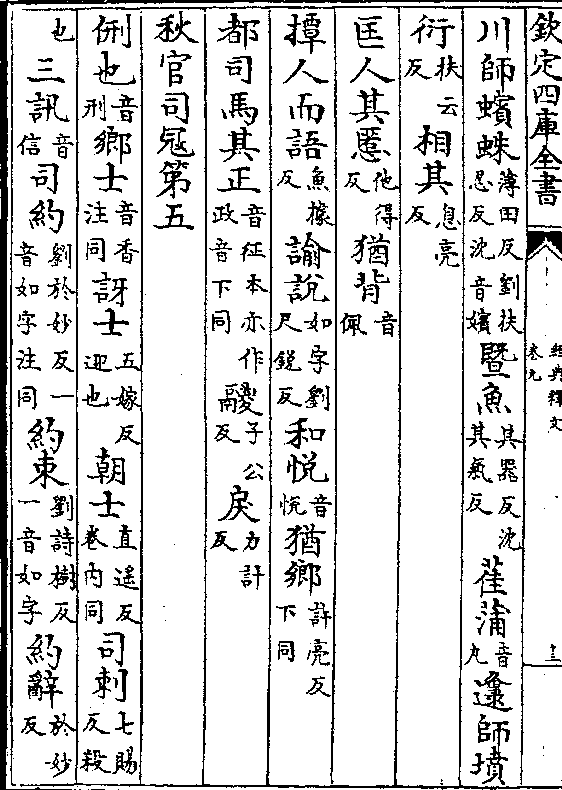 欽定四庫全書
經典釋文
卷九
十三
川師蠙蛛薄田反劉扶忍反沈音嬪曁魚其器反沈其氣反萑蒲音丸邍師墳
衍扶云反相其息亮反
匡人其慝他得反猶背音佩
撢人而語魚據反諭說如字劉尺鋭反和悦音悦猶鄉許亮反下同
都司馬其正音征本亦作政音下同鬷子公反戾力計反
秋官司冦第五
侀也音刑鄉士音香注同訝士五嫁反迎也朝士直遥反卷内同司刺七賜反殺
也三訊音信司約劉於妙反一音如字注同約束劉詩樹反一音如字約辭於妙反